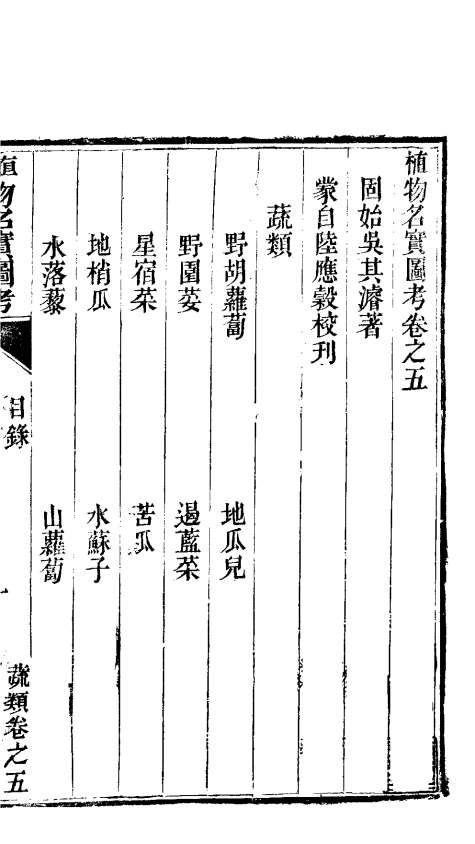 植物名實圖考卷之五
固始吳其濬著
蒙自陸應穀校刋
蔬類
野胡蘿蔔　地瓜兒
野園荽　遏藍菜
星宿菜　苦瓜
地梢瓜　水蘇子
水落藜　山蘿蔔
植物名實圖考　目錄　一　蔬類卷之五